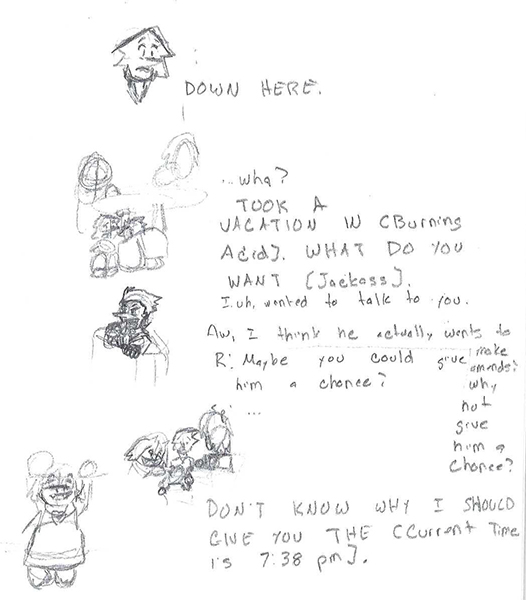 DOWN HERE.
...wha?
TOOK A
VACATION IN [Burning
Acid]. WHAT DO YOU
WANT [Jackass].
I.. uh, wanted to talk to you.
Aw, I think he actually wants to
make
amends!
Why
not
give
him a
chance?
R: Maybe you could give
him a chance?
...
DON'T KNOW WHY I SHOULD
GIVE YOU THE [Current Time
is 7:38 pm].